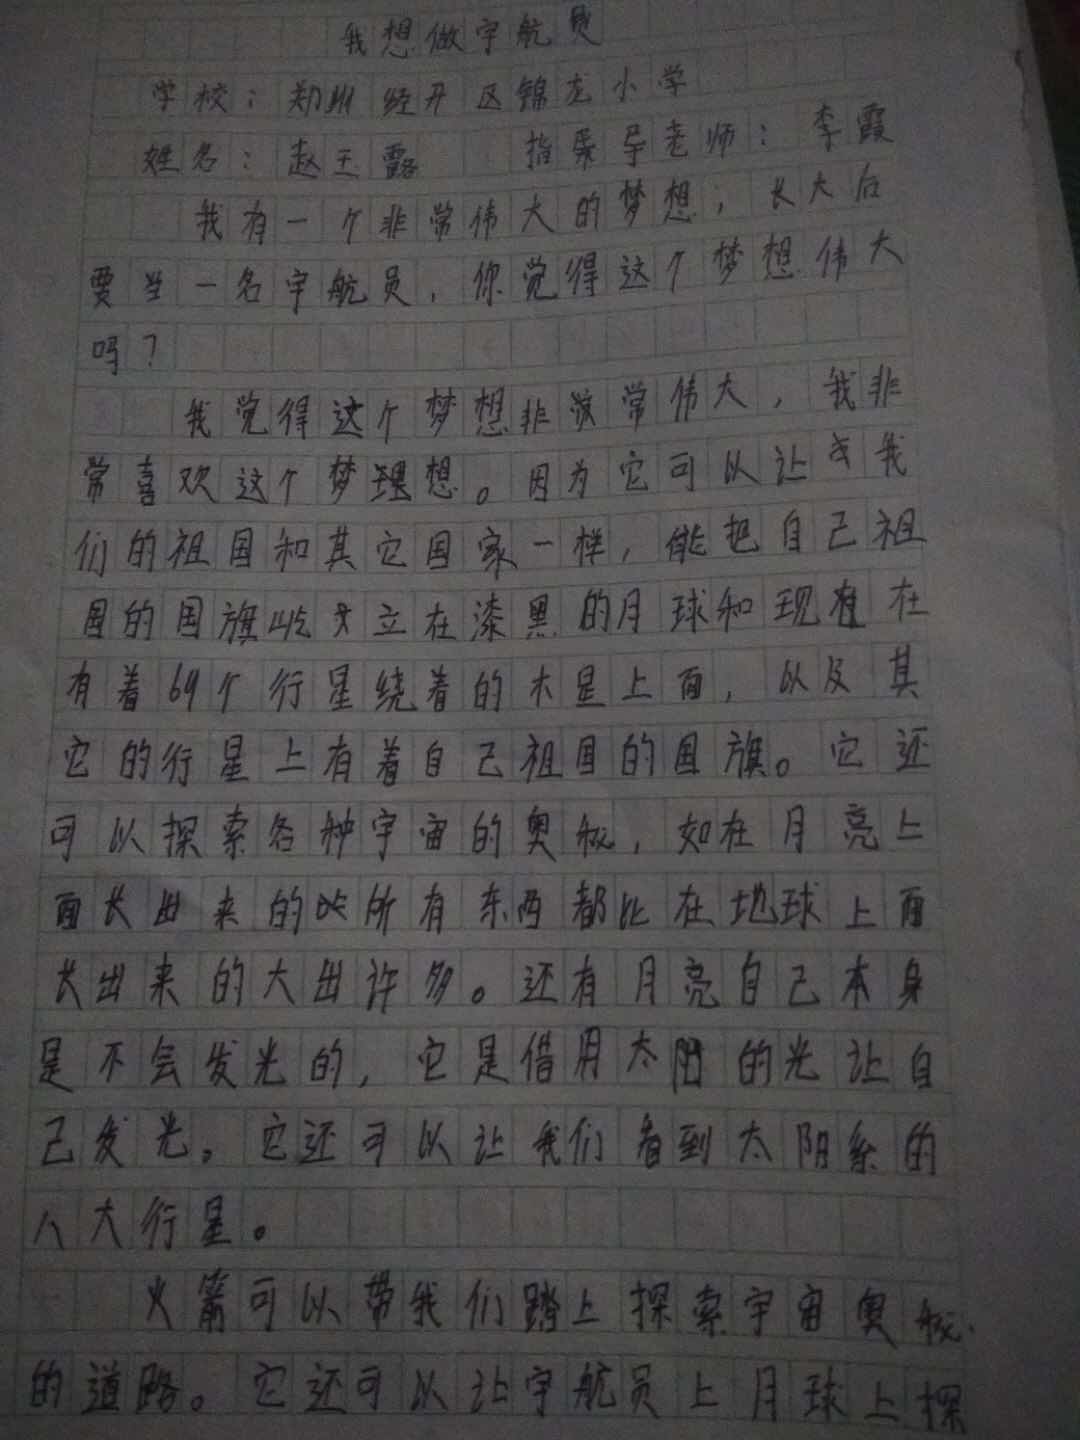 我想做宇航员
学校：郑州经开区锦龙小学
姓名：赵玉露 指导老师：李霞
我有一个非常伟大的梦想；长大后
要当一名宇航员，你觉得这个梦想伟大
吗？
我觉得这个梦想非常伟大，我非
常喜欢这个梦理想。因为它可以让我
们的祖国和其它国家一样，能把自己祖
国的国旗屹立在漆黑的月球和现在
有着69个行星绕着的木星上面，以及其
它的行星上有着自己祖国的国旗。它还
可以探索各种宇宙的奥秘，如在月亮上
面长出来的所有东西都比在地球上面
长出来的大出许多。还有月亮自己本身
是不会发光的，它是借用太阳的光让自
己发光。它还可以让我们看到太阴系的
八大行星。
火箭可以带我们踏上探索宇宙奥秘
的道路。它还可以让宇航员上月球上探